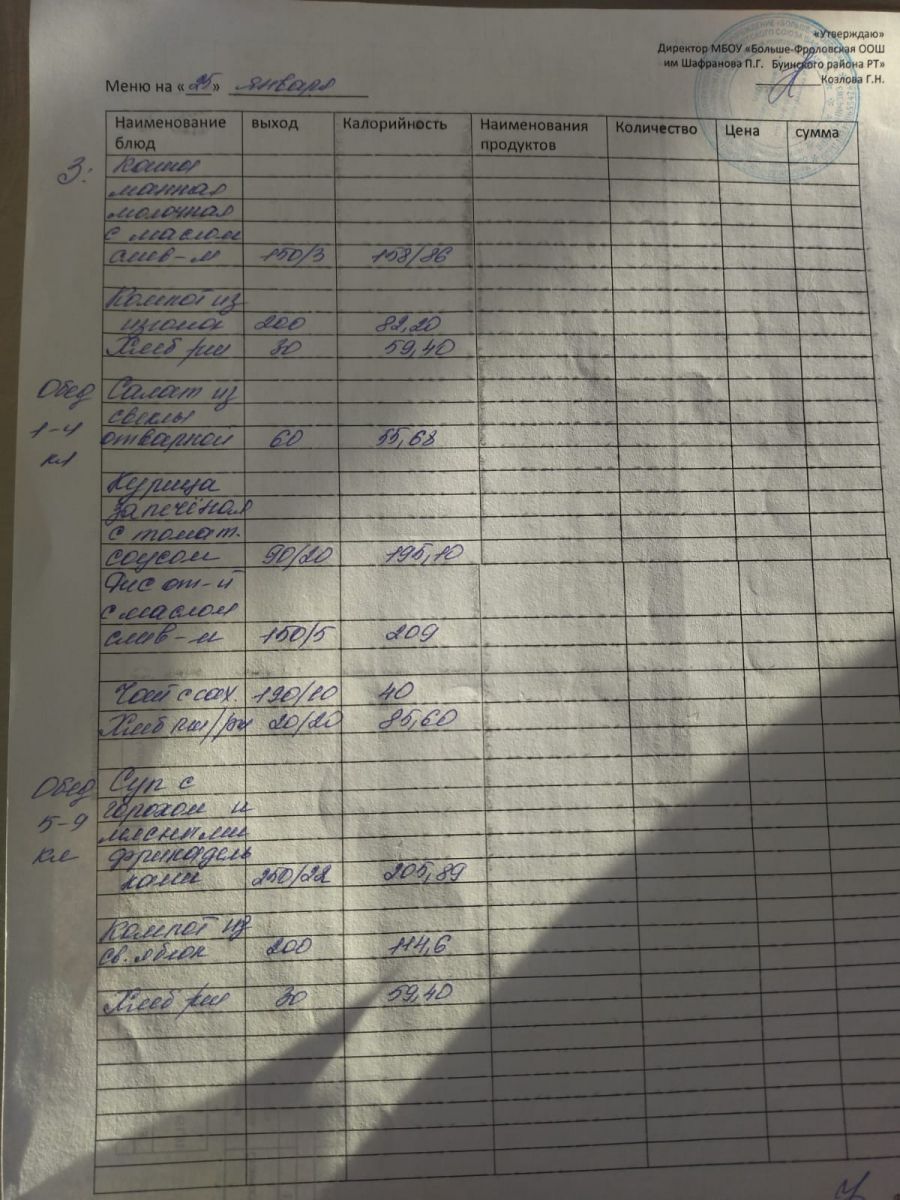 «Утверждаю»
Директор МБОУ «Больше-Фроловская ООШ
им Шафранова П.Г. Буинского района РТ»
Козлова Г.Н.
Меню на «25» января
Наименование блюд выход Калорийность Наименования продуктов Количество Цена сумма
З: Каша
манная
молочная
с маслом
слив-м 150/3 158/86
Компот из
изюма 200 82,20
Хлеб рж 30 59,40
Обед Салат из
1-4 свеклы
кл отварной 60 55,68
Курица
запечёная
с томат.
соусом 90/20 195,10
Рис от-й
с маслом
слив-м 150/5 209
Чай с сах. 190/10 40
Хлеб пш/рж 20/20 85,60
Обед Суп с
5-9 горохом и
кл мясными
фрикадель
ками 250/22 205,89
Компот из
св. яблок 200 114,6
Хлеб рж 30 59,40